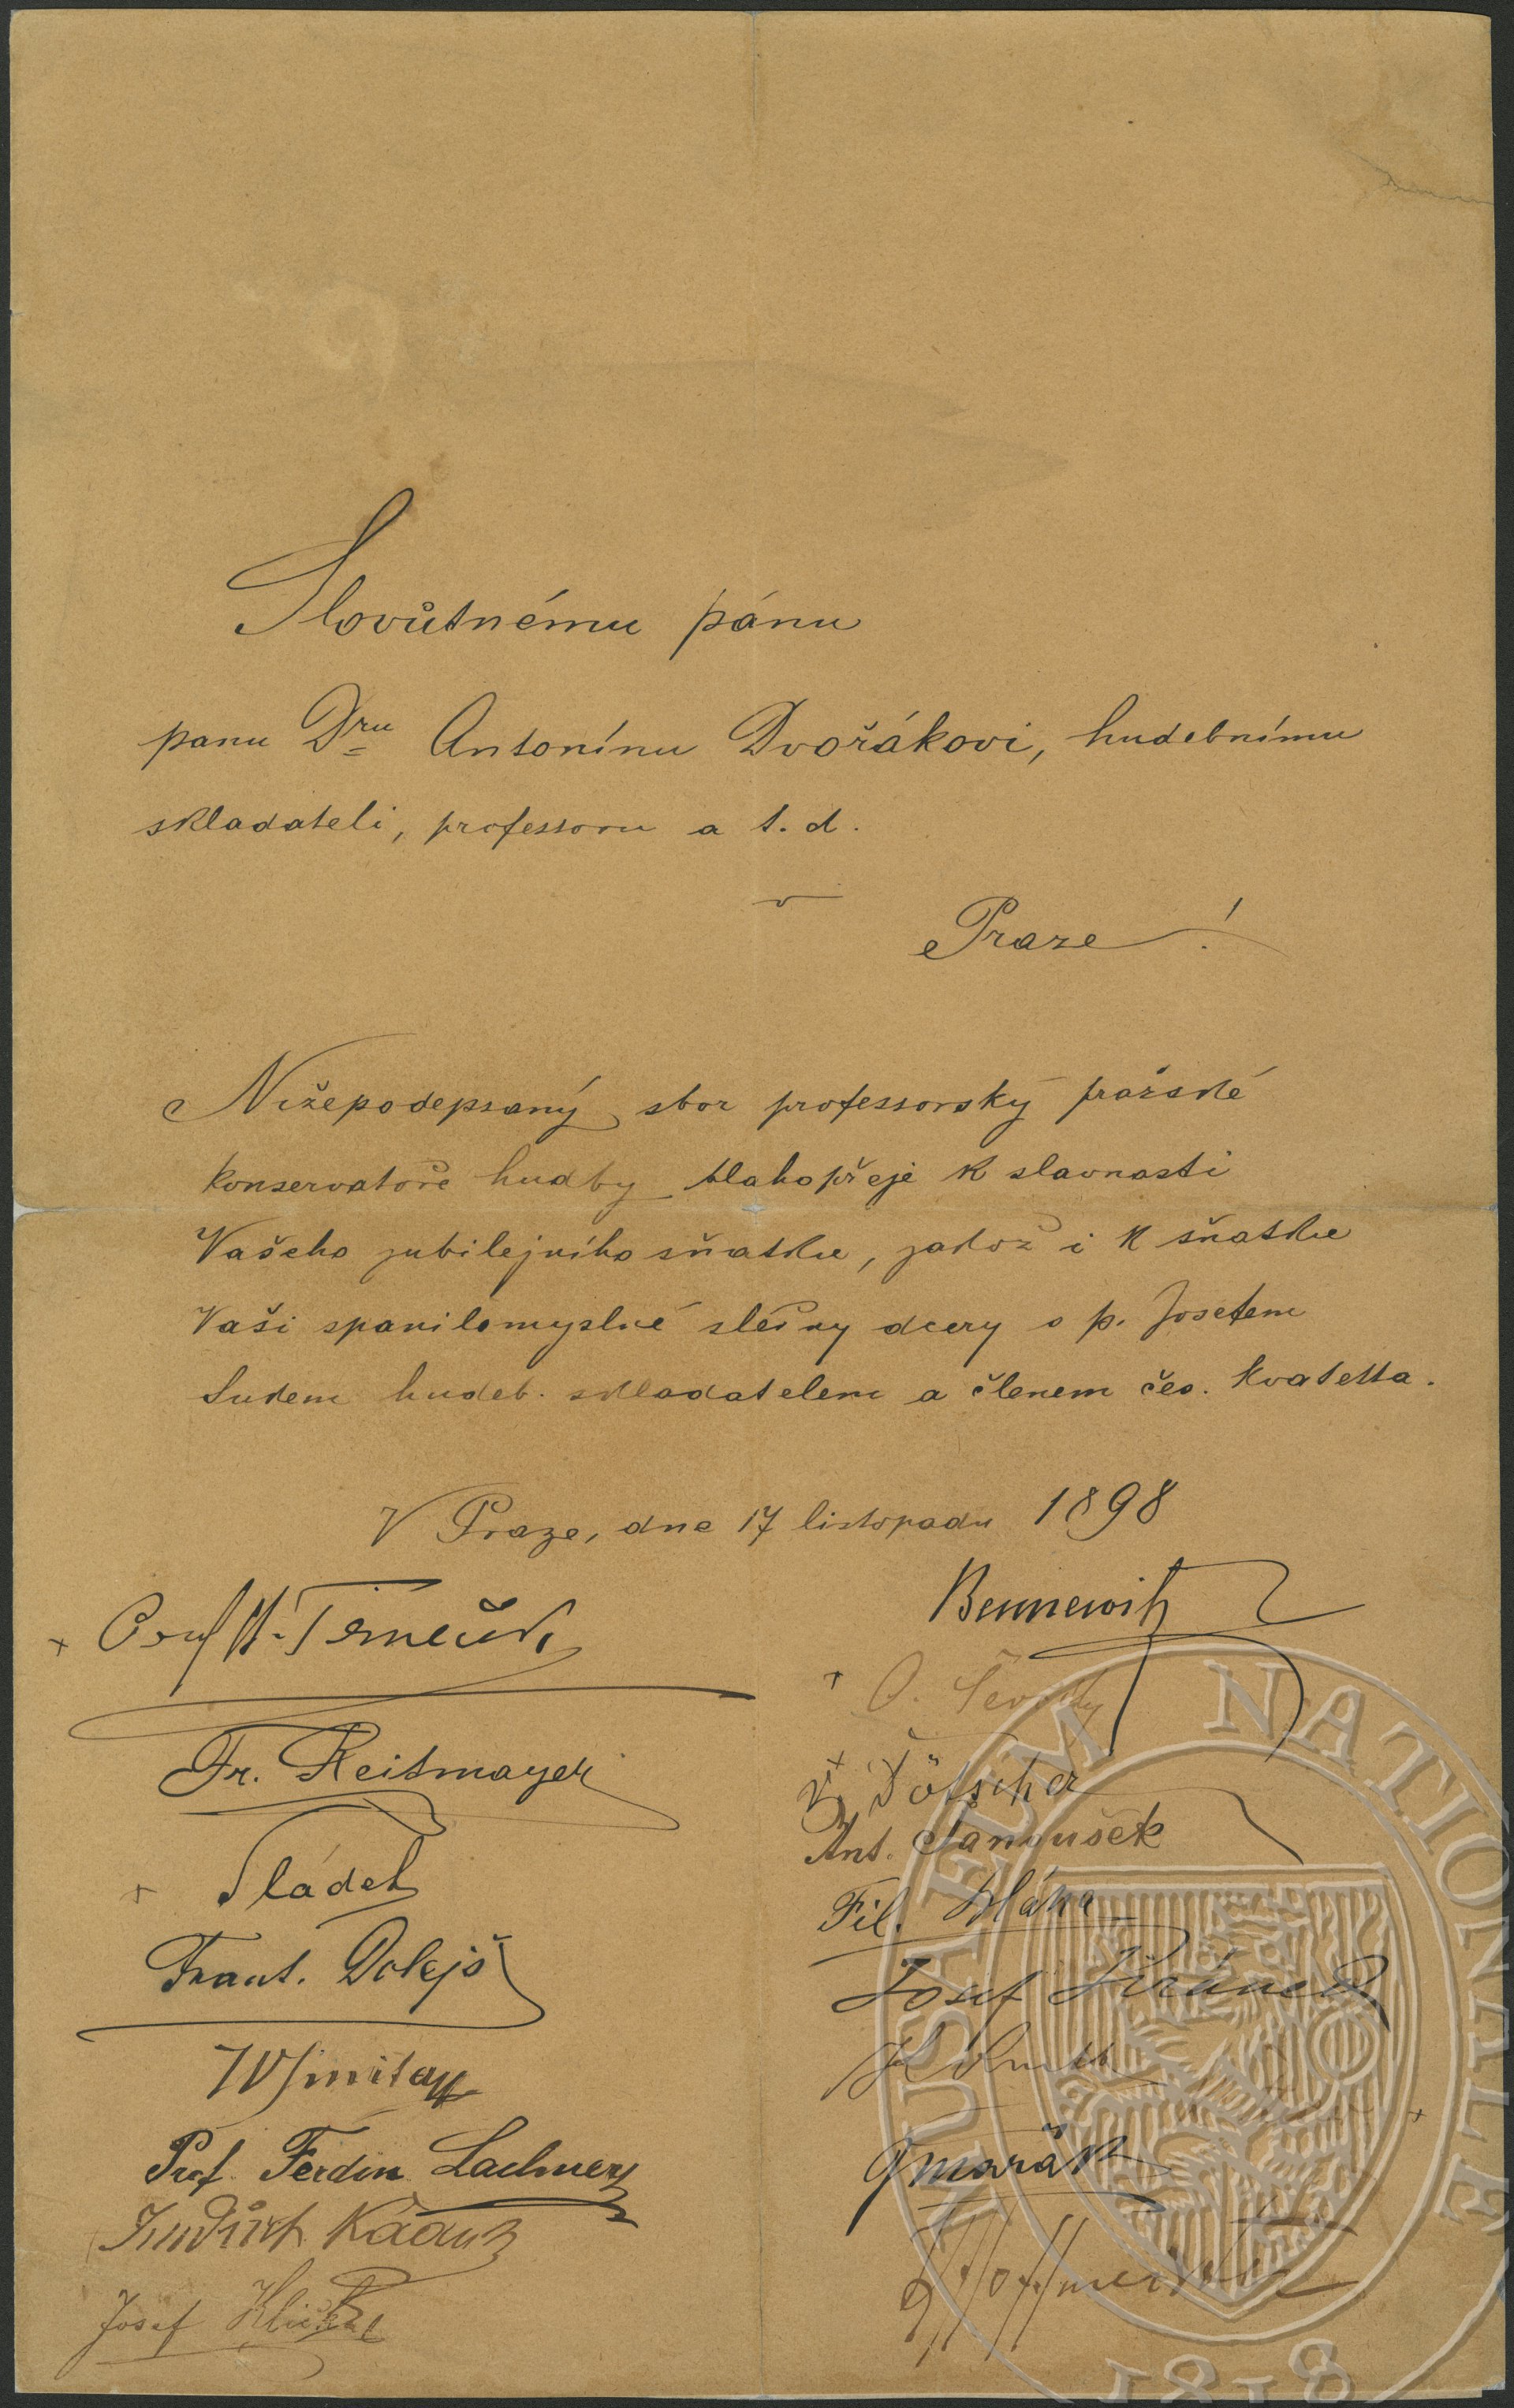 Slovůtnému pánu
panu Dru Antonínu Dvořákovi, hudebnímu
skladateli, professoru a t. d.
v
Praze!
Nížepodepsaný sbor professorský pražské
konservatoře hudby blahopřeje k slavnosti
Vašeho jubilejního sňatku, jakož i k sňatku
Vaši spanilomyslné slečny dcery s p. Josefem
Sukem hudeb. skladatelem a členem čes. kvatetta.
V Praze, dne 17 listopadu 1898
Bennewitz
Prof
O. Ševčík
Fr. Reitmayer
Ant. Janoušek
Sládek
Fil. Bláha
Frant. Dolejš
Josef Jiránek
Prof. Ferdin Lachner
Mařák
Jindřich Kàan
Josef Klička
MUSAEUM NATIONALE
1818